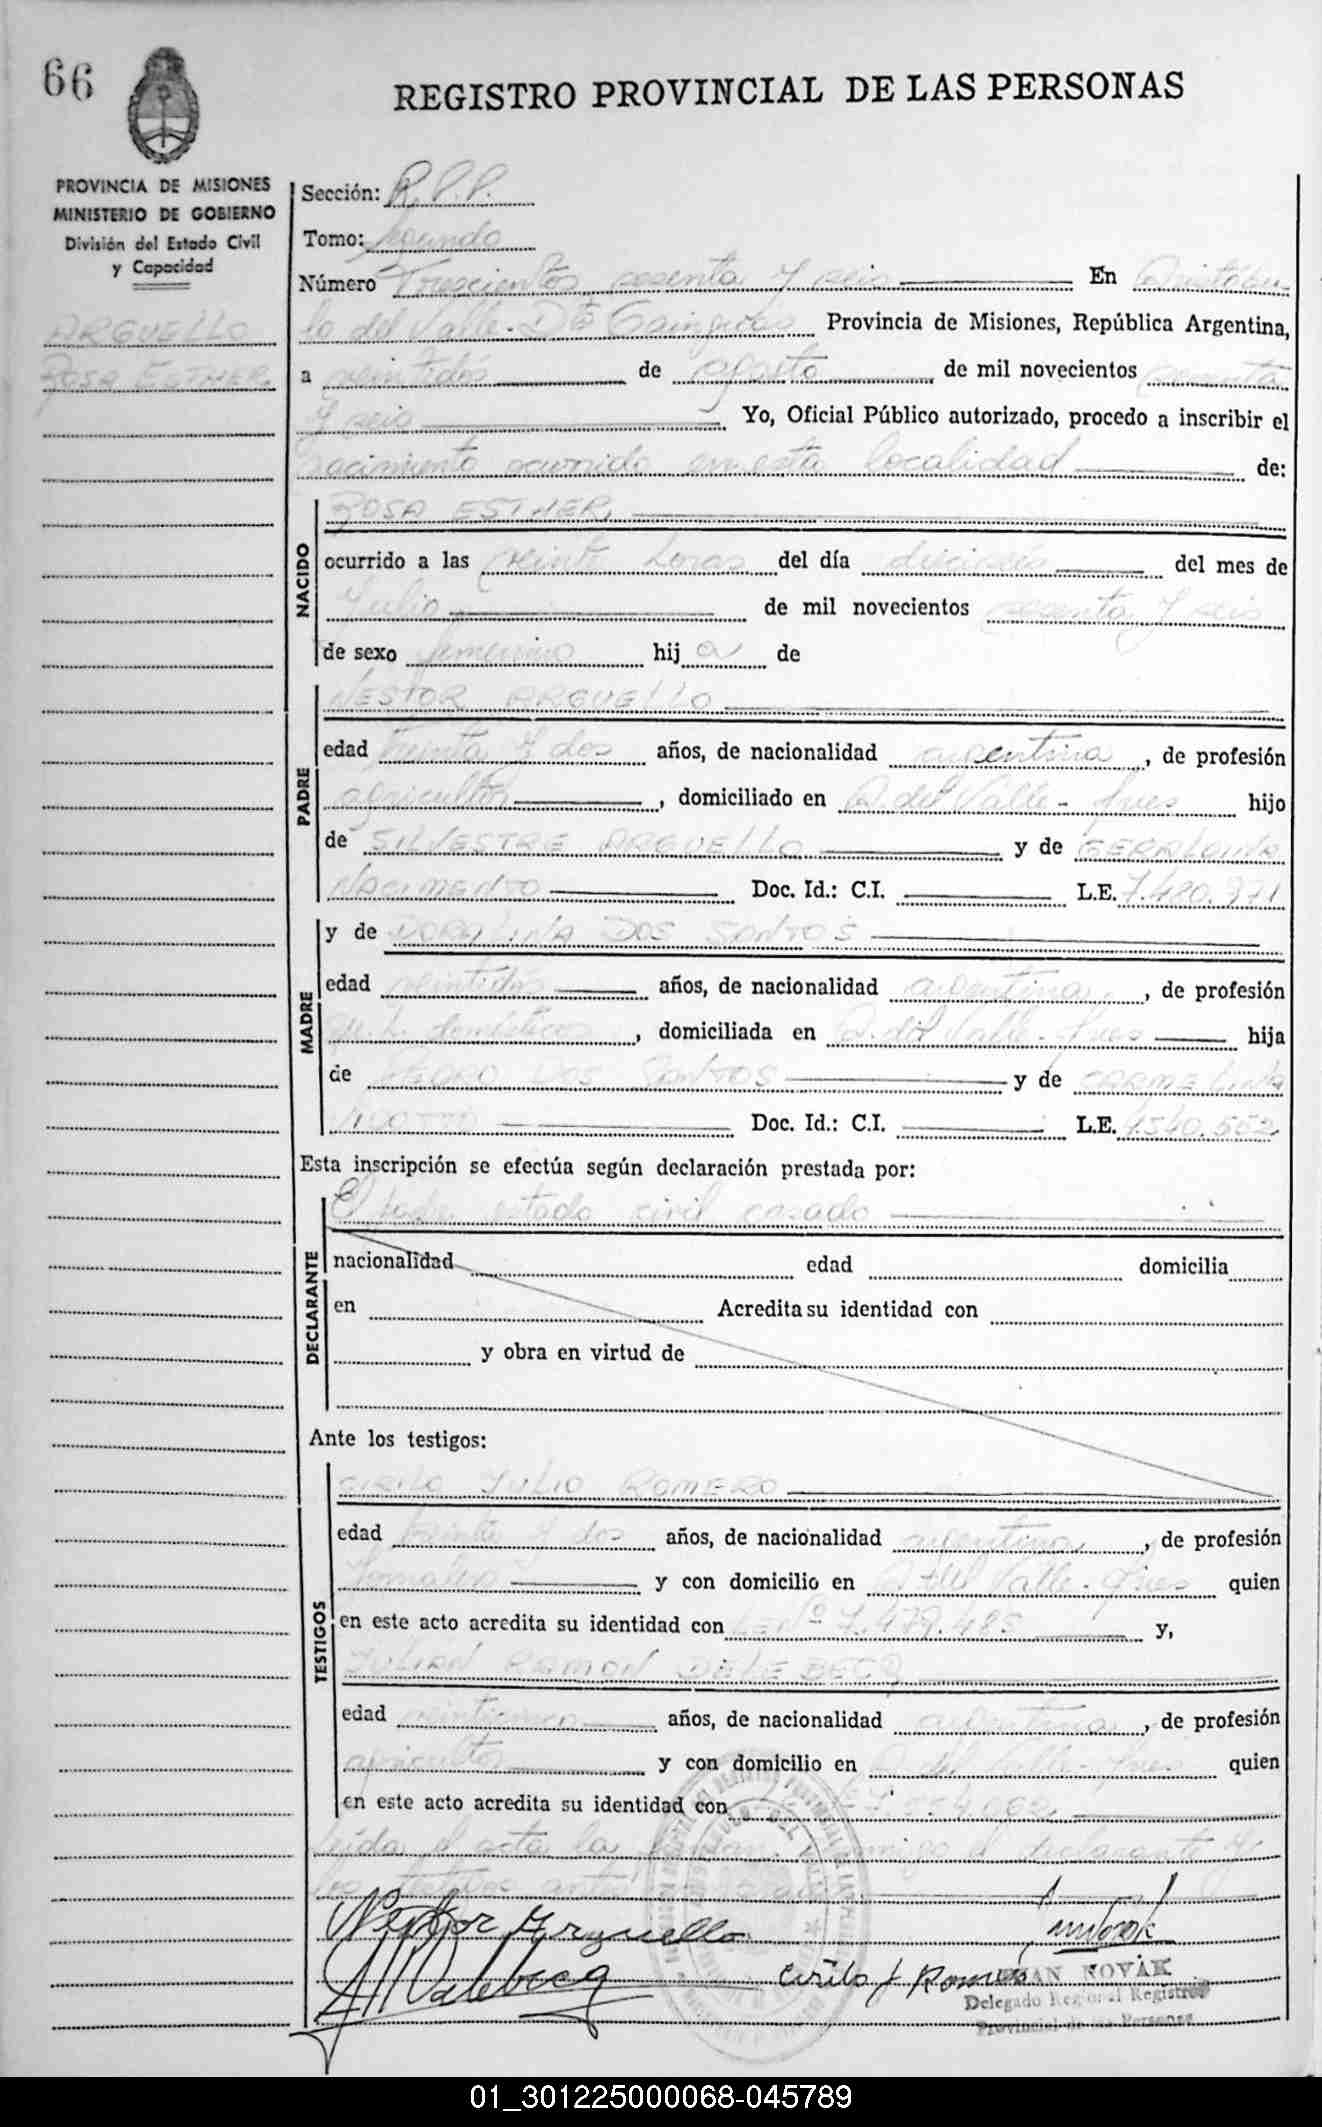 66
REGISTRO PROVINCIAL DE LAS PERSONAS
PROVINCIA DE MISIONES
MINISTERIO DE GOBIERNO
División del Estado Civil
y Capacidad
ARGUELLO
ROSA ESTHER
Sección: R.P.P.
Tomo: Segundo
Número Trescientos sesenta y seis En Aristóbu-
lo del Valle - Dto Cainguás Provincia de Misiones, República Argentina,
a veintidós de agosto de mil novecientos sesenta
y seis Yo, Oficial Público autorizado, procedo a inscribir el
nacimiento ocurrido en esta localidad de:
NACIDO
ROSA ESTHER
ocurrido a las veinte horas del día dieciséis del mes de
Julio de mil novecientos sesenta y seis
de sexo femenino hij a de
PADRE
NESTOR ARGUELLO
edad treinta y dos años, de nacionalidad argentina, de profesión
agricultor, domiciliado en A. del Valle - hijo
de SILVESTRE ARGUELLO y de
NACIMENTO Doc. Id.: C.I. L.E. 7.480.371
MADRE
y de DORALINA DOS SANTOS
edad veintidós años, de nacionalidad argentina, de profesión
q. h. domésticos, domiciliada en A. del Valle - hija
de PEDRO DOS SANTOS y de CARMELINA
Doc. Id.: C.I. L.E. 4.540.552
Esta inscripción se efectúa según declaración prestada por:
DECLARANTE
El padre estado civil casado
nacionalidad edad domicilia
en Acredita su identidad con
y obra en virtud de
Ante los testigos:
TESTIGOS
CIRILO JULIO ROMERO
edad treinta y dos años, de nacionalidad argentina, de profesión
Jornalero y con domicilio en A. del Valle - quien
en este acto acredita su identidad con LE Nº 7.479.485 y,
JULIAN RAMON DELEBECQ
edad veinticinco años, de nacionalidad argentina, de profesión
agricultor y con domicilio en A. del Valle - quien
en este acto acredita su identidad con
leída el acta la firman conmigo el declarante y
los testigos ante
Nestor Arguello
Cirilo J Romero
JUAN NOVAK
Delegado Regional Registro
Provincial de las Personas
01_301225000068-045789